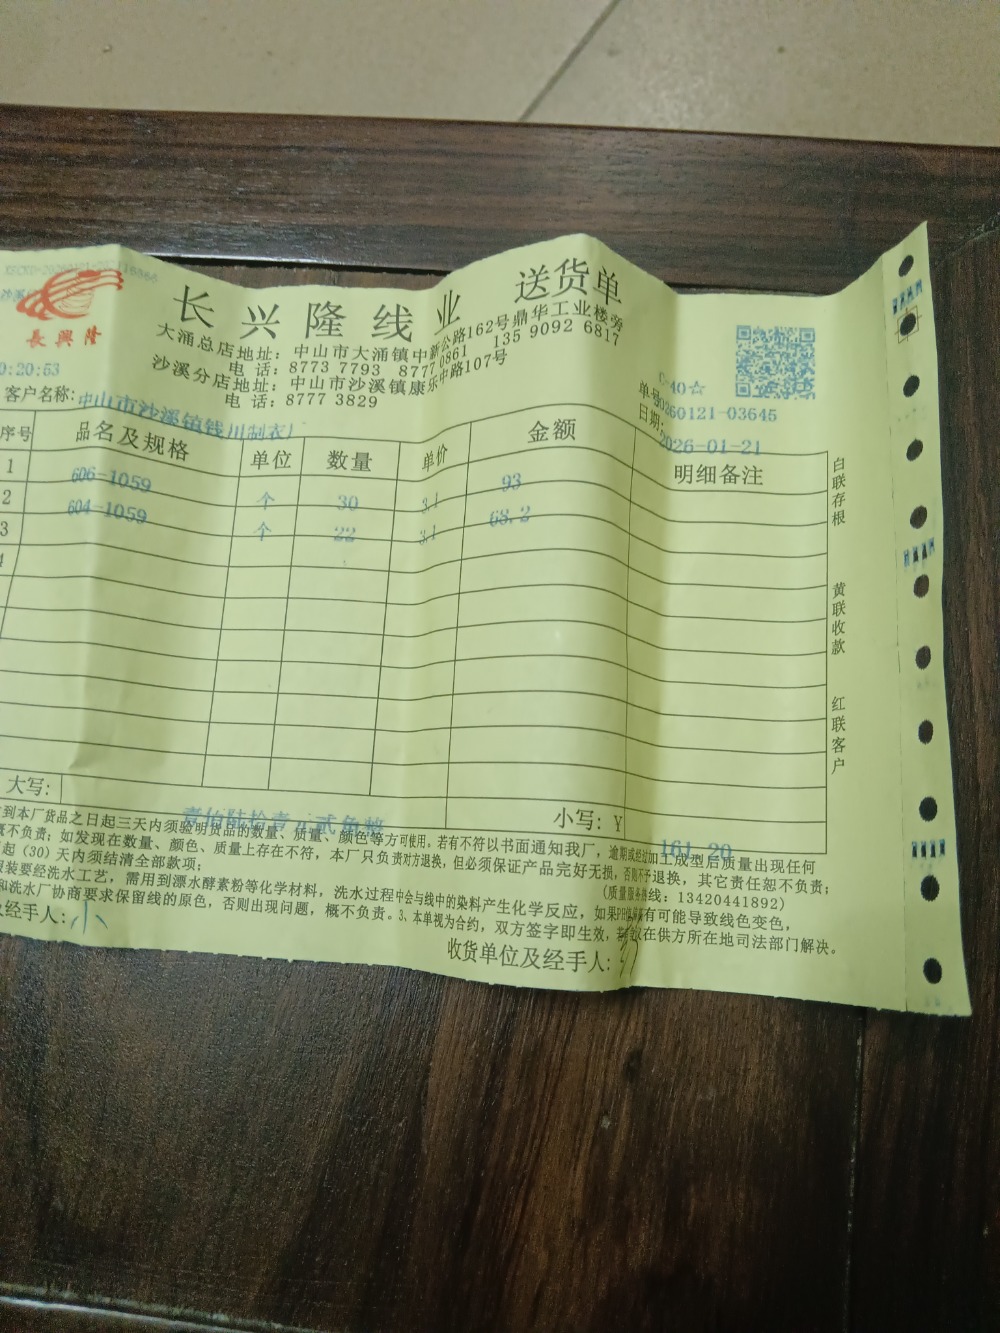 長興隆
长兴隆线业 送货单
大涌总店地址: 中山市大涌镇中新公路162号鼎华工业楼旁
电 话: 8773 7793 8777 0861 135 9092 6817
沙溪分店地址: 中山市沙溪镇康乐中路107号
电 话: 8777 3829
C-40☆
:20:53
单号:
260121-03645
客户名称: 中山市沙溪镇钱川制衣厂
日期: 2026-01-21
序号 品名及规格 单位 数量 单价 金额 明细备注
1 606-1059 个 30 3.1 93
2 604-1059 个 22 3.1 68.2
3
4
白联存根
黄联收款
红联客户
大写: 壹佰陆拾壹元贰角整 小写: Y 161.20
到本厂货品之日起三天内须验明货品的数量、质量、颜色等方可使用。若有不符以书面通知我厂,逾期或经过加工成型后质量出现任何
概不负责;如发现在数量、颜色、质量上存在不符,本厂只负责对方退换,但必须保证产品完好无损,否则不予退换,其它责任恕不负责;
起(30)天内须结清全部款项;
(质量服务热线: 13420441892)
服装要经洗水工艺,需用到漂水酵素粉等化学材料,洗水过程中会与线中的染料产生化学反应,如果有可能导致线色变色,
和洗水厂协商要求保留线的原色,否则出现问题,概不负责。3、本单视为合约,双方签字即生效,若有争议在供方所在地司法部门解决。
及经手人: 小
收货单位及经手人: